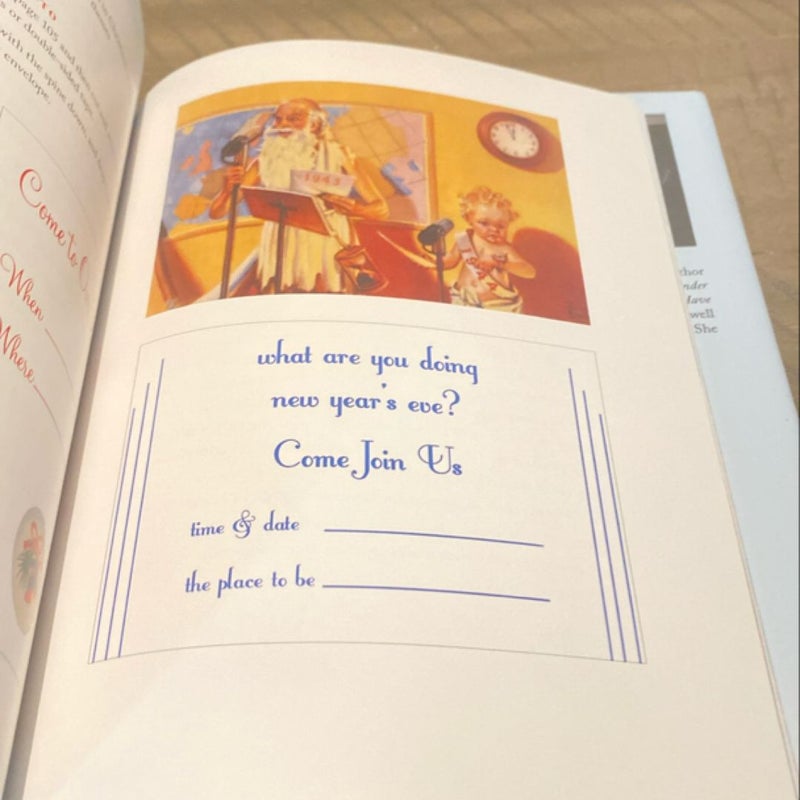 page 105 and
or double-sided tape
with the spine down, and
envelope.
Come to
When
Where
1943
what are you doing
new year's eve?
Come Join Us
time & date
the place to be
thor
nder
Have
well
She